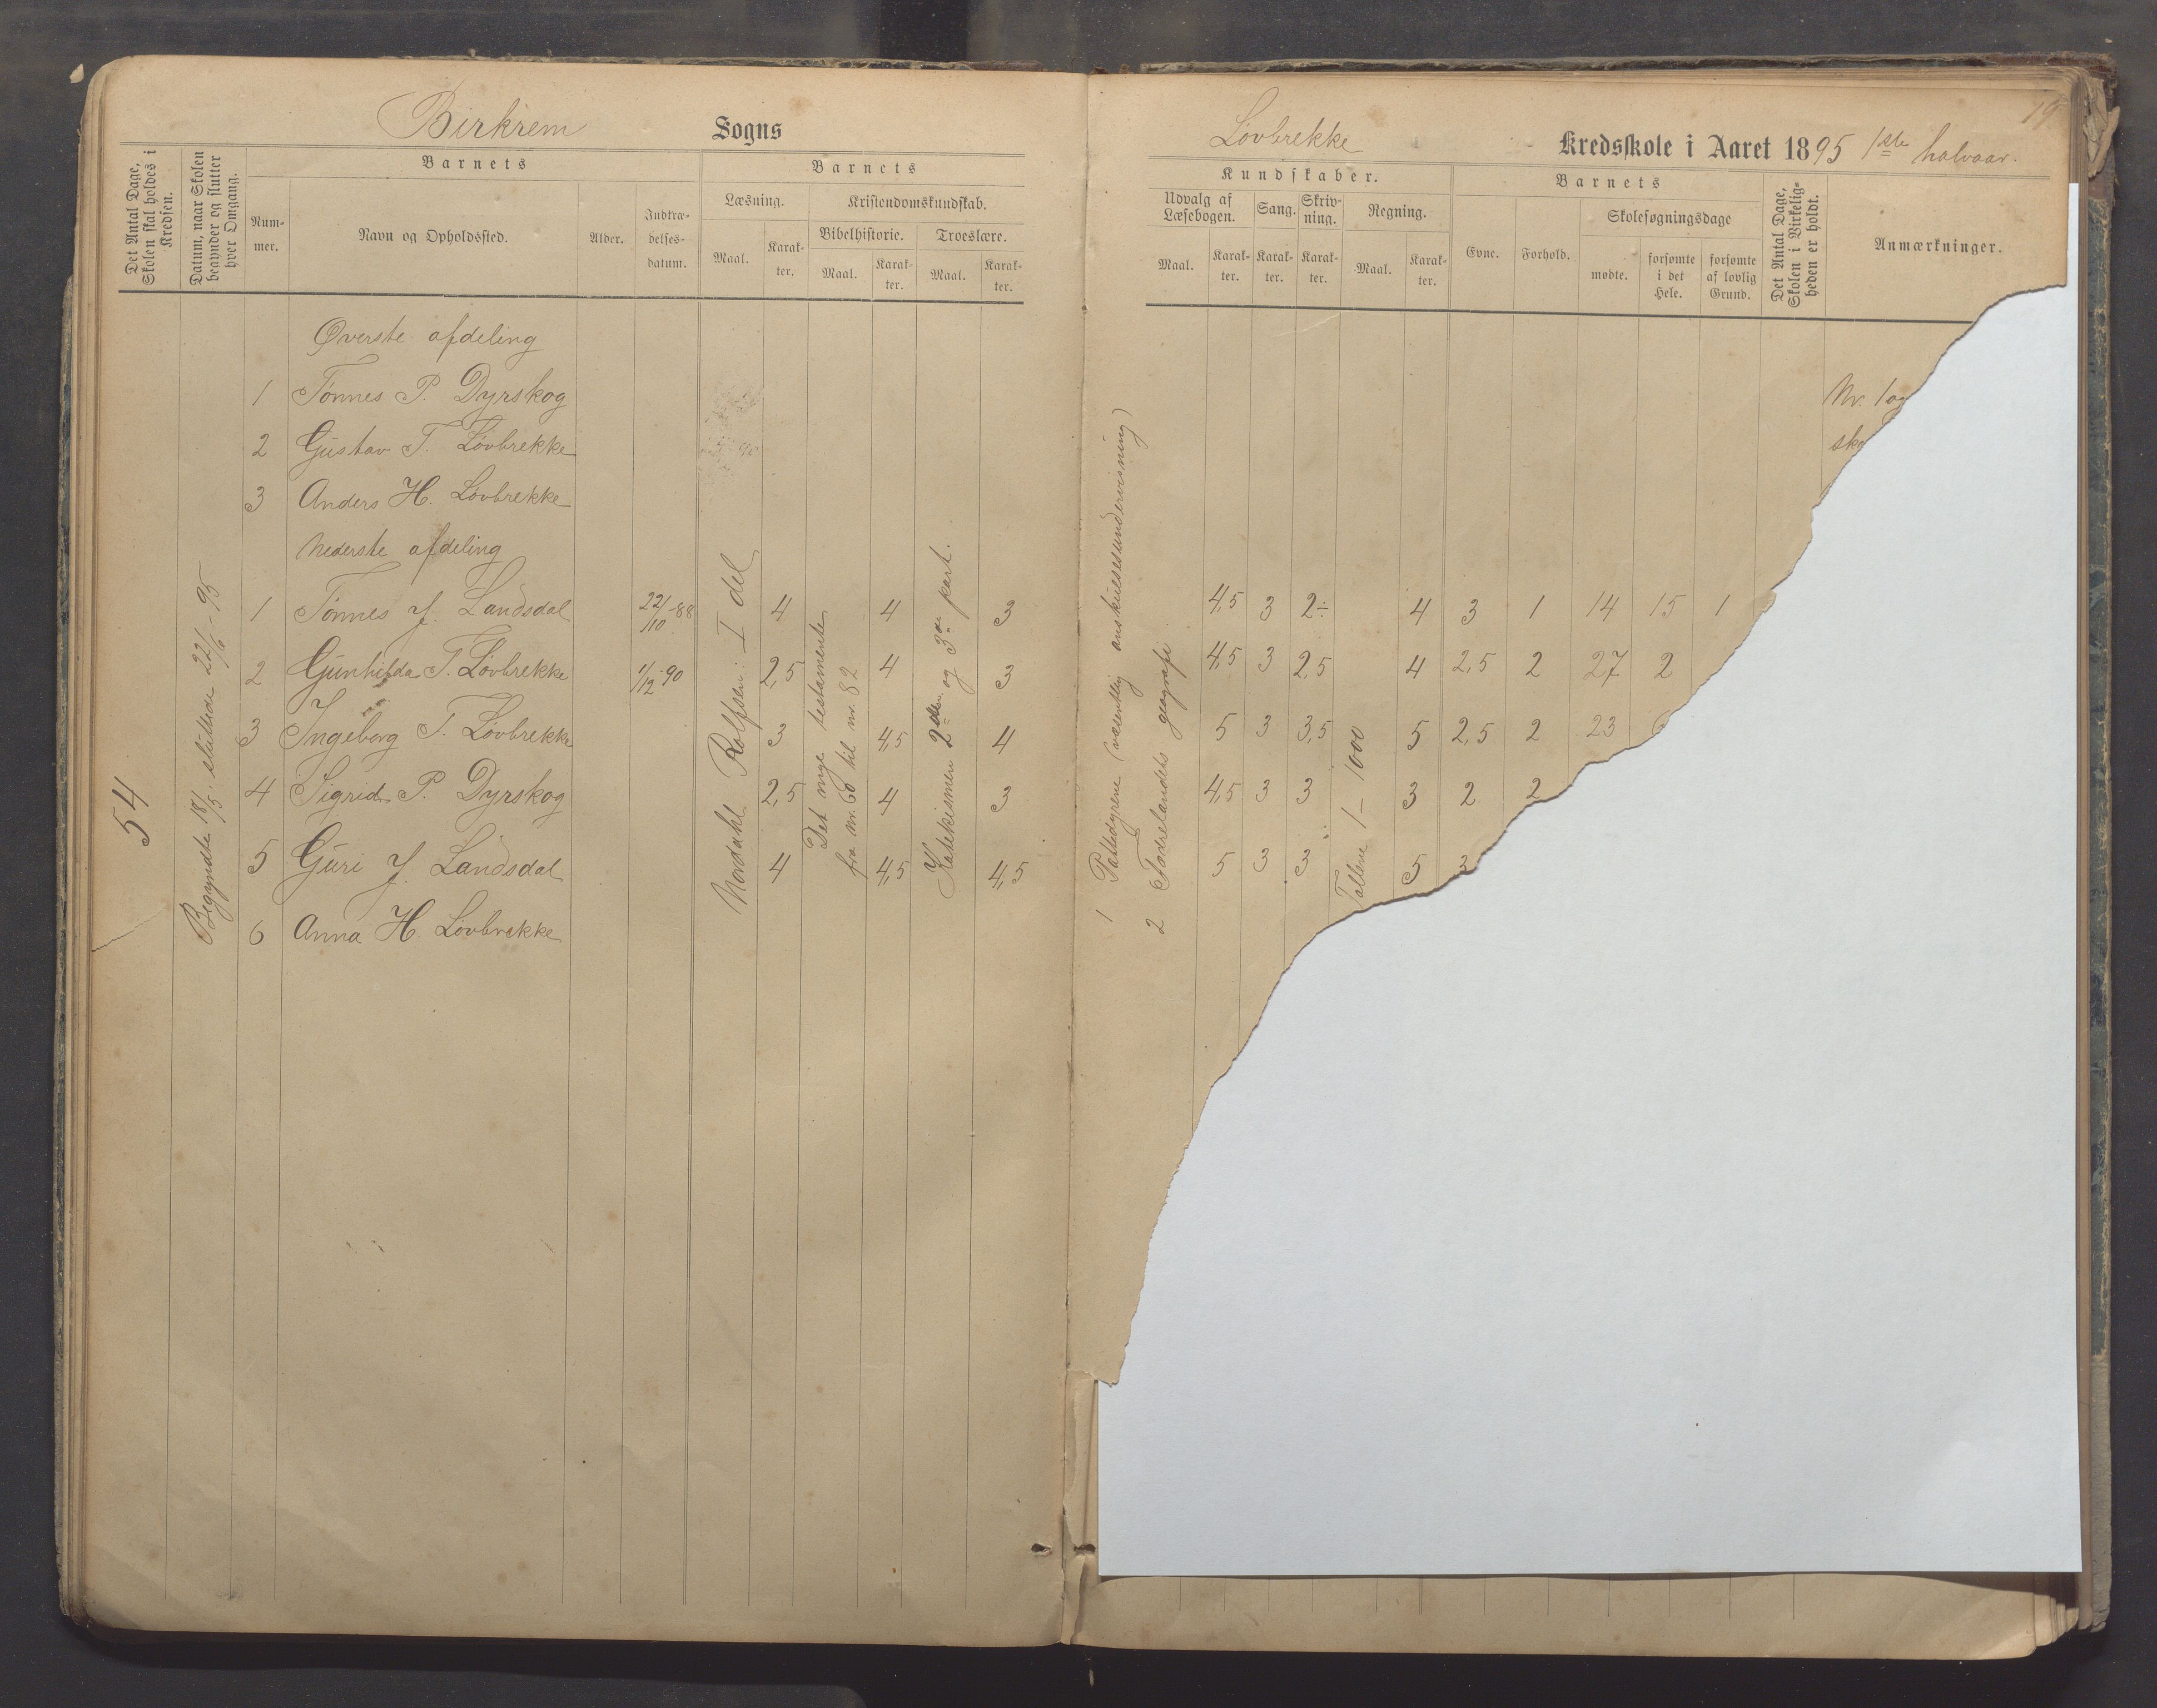 Birkrem Sogns
Det Antal Dage, Skolen skal holdes i Kredsen.
Datum, naar Skolen begynder og slutter hver Omgang.
Barnets
Num-
mer.
Navn og Opholdssted.
Alder.
Indtræ-
delses-
datum.
Barnets
Læsning.
Maal.
Karak-
ter.
Kristendomskundskab.
Bibelhistorie.
Troeslære.
Maal.
Karak-
ter.
Maal.
Karak-
ter.
54
Begyndte 18/5. sluttede 22/6 - 95
Øverste afdeling
1 Tønnes P. Dyrskog
2 Gustav T. Løvbrekke
3 Anders H. Løvbrekke
Nederste afdeling
1 Tønnes J. Landsdal 22/10-88 4 4 3
2 Gunhilda T. Løvbrekke 1/12-90 2,5 4 3
3 Ingeborg T. Løvbrekke 3 4,5 4
4 Sigrid P. Dyrskog 2,5 4 3
5 Guri J. Landsdal 4 4,5 4,5
6 Anna H. Løvbrekke
Nordahl Rolfsen: I del
Det nye testamente
fra nr. 60 til nr. 82
Katekismen 2den og 3die part.
19
Løvbrekke Kredsskole i Aaret 1895 1ste halvaar.
Kundskaber.
Udvalg af
Læsebogen.
Maal.
Karak-
ter.
Sang.
Karak-
ter.
Skriv-
ning.
Karak-
ter.
Regning.
Maal.
Karak-
ter.
Barnets
Evne.
Forhold.
Skolesøgningsdage
mødte.
forsømte
i det
Hele.
forsømte
af lovlig
Grund.
Det Antal Dage, Skolen i Virkelig-
heden er holdt.
Anmærkninger.
Nr. 1 og
1 Pattedyrene (væsentlig anskuelsesundervisning)
2 Fædrelandets geografi
Tallene 1 - 1000
4,5 3 2÷ 4 3 1 14 15 1
4,5 3 2,5 4 2,5 2 27 2
5 3 3,5 5 2,5 2 23
4,5 3 3 3 2 2
5 3 3 5 3